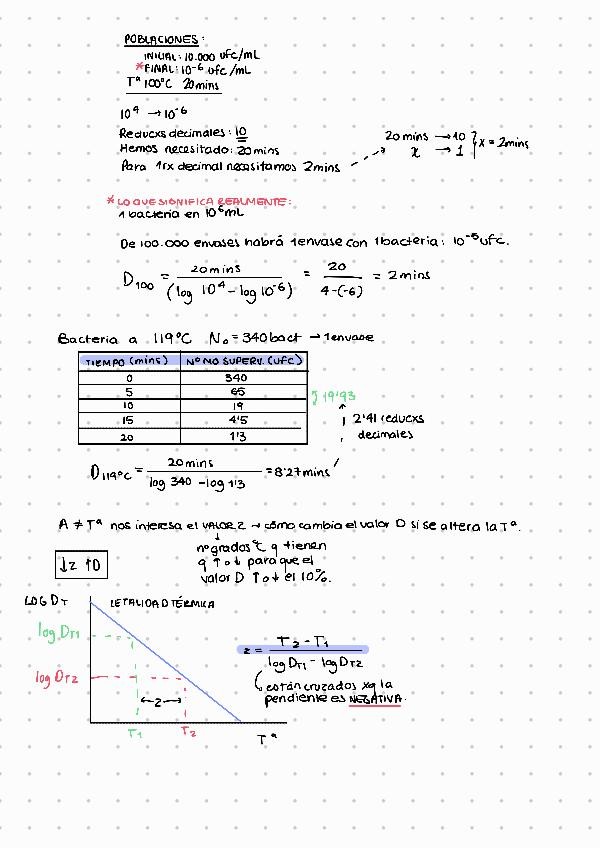 POBLACIONES:
INICIAL: 10.000 ufc/mL
*FINAL: 10⁻⁶ ufc/mL
Tª 100°C 20 mins
10⁴ → 10⁻⁶
Reducxs decimales: 10
Hemos necesitado: 20 mins
Para 1rx decimal necesitamos 2 mins
20 mins → 10
x → 1
x = 2 mins
* LO QUE SIGNIFICA REALMENTE:
1 bacteria en 10⁶ mL
De 100.000 envases habrá 1 envase con 1 bacteria: 10⁻⁵ ufc.
D₁₀₀ = 20 mins / (log 10⁴ - log 10⁻⁶) = 20 / 4-(-6) = 2 mins
Bacteria a 119°C N₀ = 340 bact → 1 envase
TIEMPO (mins) Nº NO SUPERV. (UFC)
0 340
5 65
10 19
15 4'5
20 1'3
} 19'93
2'41 reducxs
decimales
D₁₁₉°C = 20 mins / log 340 - log 1'3 = 8'27 mins
A ≠ Tª nos interesa el VALOR Z → cómo cambia el valor D si se altera la Tª.
nº grados °C q tienen
q ↑ o ↓ para que el
valor D ↑ o ↓ el 10%.
↓Z ↑D
LOG D_T
LETALIDAD TÉRMICA
log D_T1
log D_T2
z
T₁
T₂
Tª
z = T₂ - T₁ / log D_T1 - log D_T2
están cruzados xq la
pendiente es NEGATIVA.